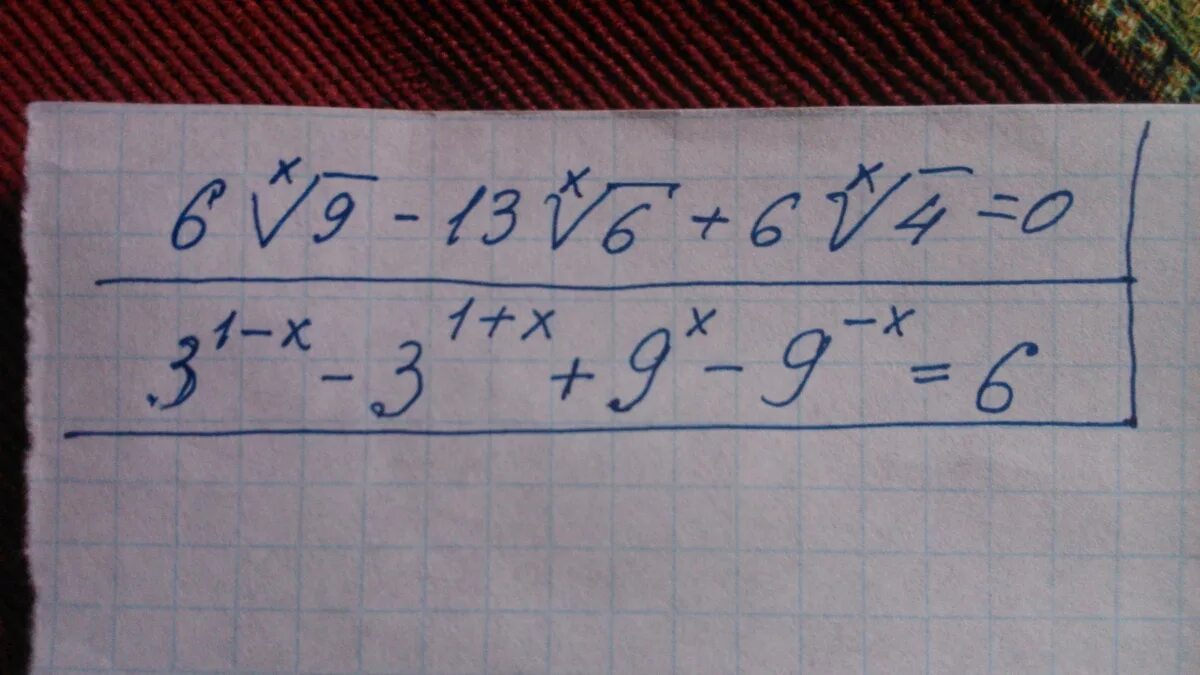 6 ˣ√9 - 13 ˣ√6 + 6 ˣ√4 = 0
3^(1-x) - 3^(1+x) + 9^x - 9^(-x) = 6